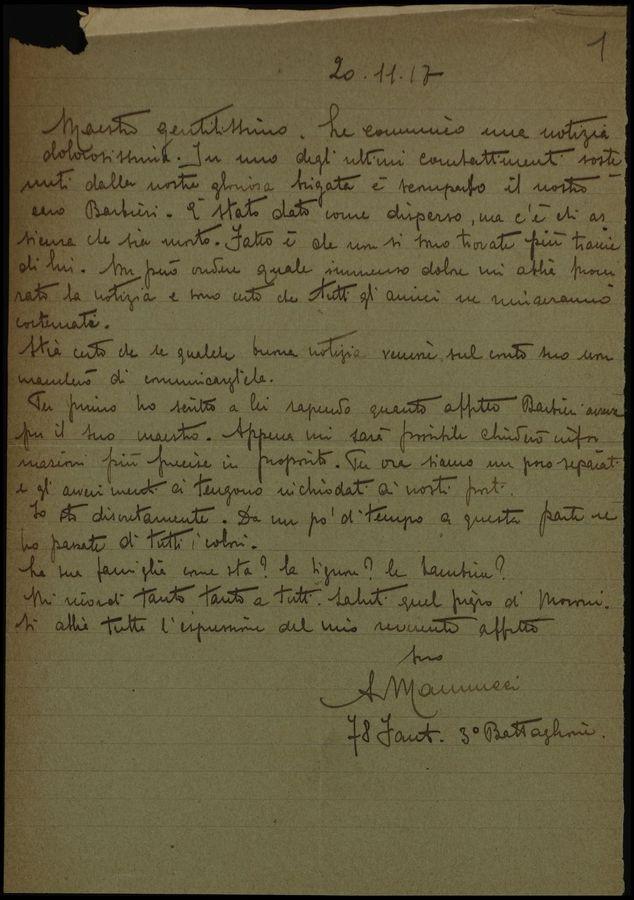 1
20.11.17
Maestro gentilissimo. Le comunico una notizia
dolorosissima. In uno degli ultimi combattimenti soste
nuti dalla nostra gloriosa brigata è scomparso il nostro
caro Barbieri. È stato dato come disperso, ma c'è chi as
sicura che sia morto. Fatto è che non si sono trovate più traccie
di lui. Non può credere quale immenso dolore mi abbia procu
rato la notizia e sono certo che tutti gli amici ne rimarranno
costernati.
Stia certo che se qualche buona notizia venisse sul conto suo non
mancherò di comunicargliela.
Per primo ho scritto a lei sapendo quanto affetto Barbieri avesse
per il suo maestro. Appena mi sarà possibile chiederò infor
mazioni più precise in proposito. Per ora siamo un poco separati
e gli avvenimenti ci tengono inchiodati ai nostri posti.
Io sto discretamente. Da un po' di tempo a questa parte ne
ho passate di tutti i colori.
La sua famiglia come sta? la signora? la bambina?
Mi ricordi tanto tanto a tutti. Saluti quel pigro di Moroni.
Si abbia tutta l'espressione del mio reverente affetto
suo
A Mannucci
78 Fant. 3° Battaglione.